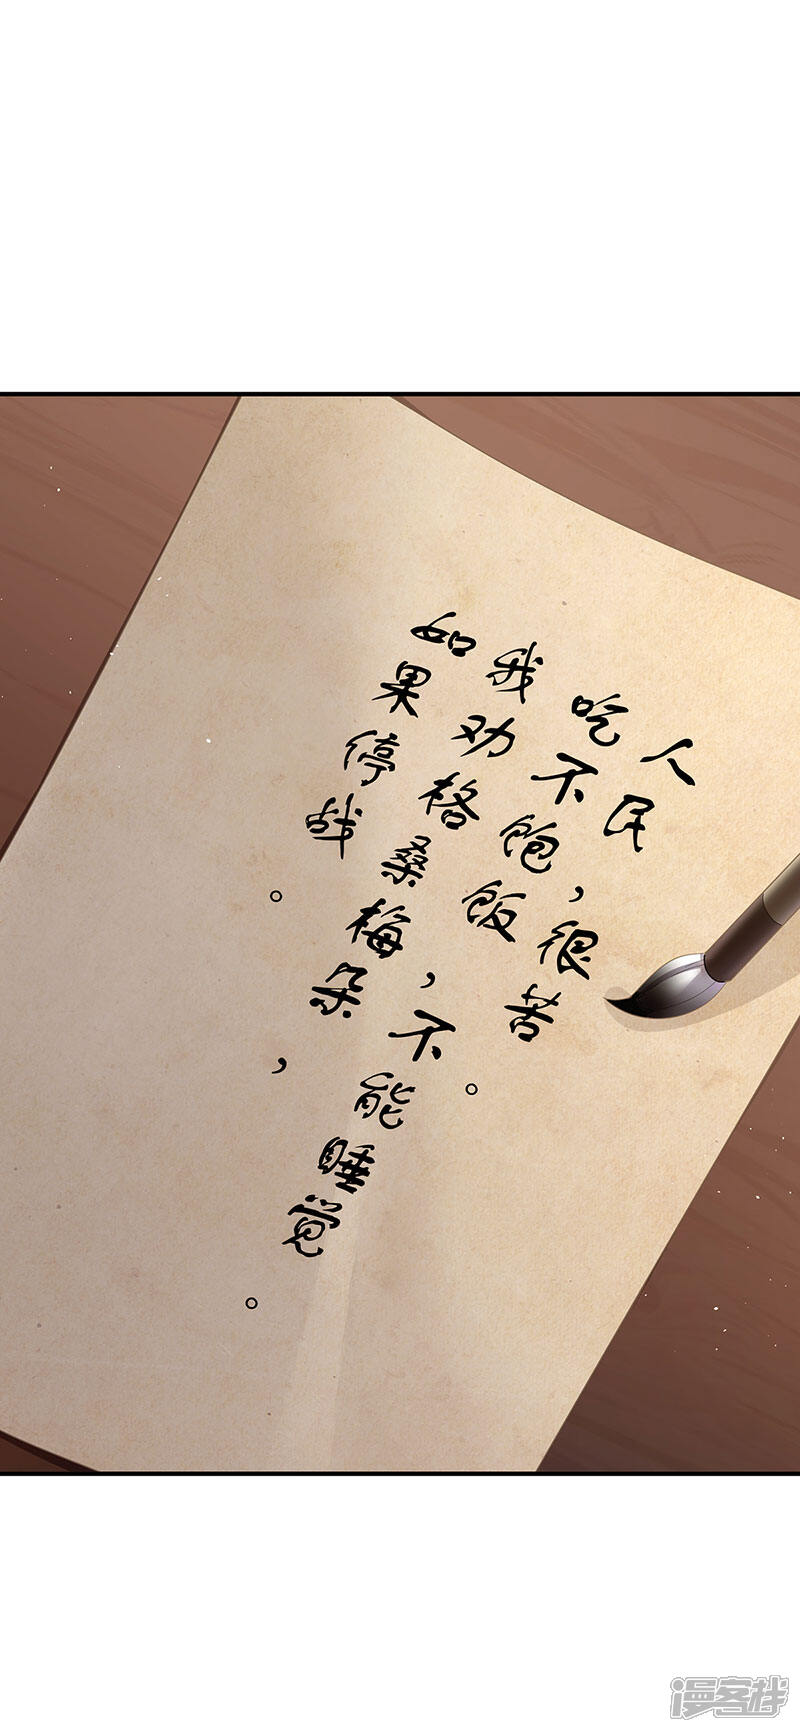 人民，很苦。
吃不饱饭，不能睡觉。
我劝格桑梅朵，
如果停战。
漫客栈